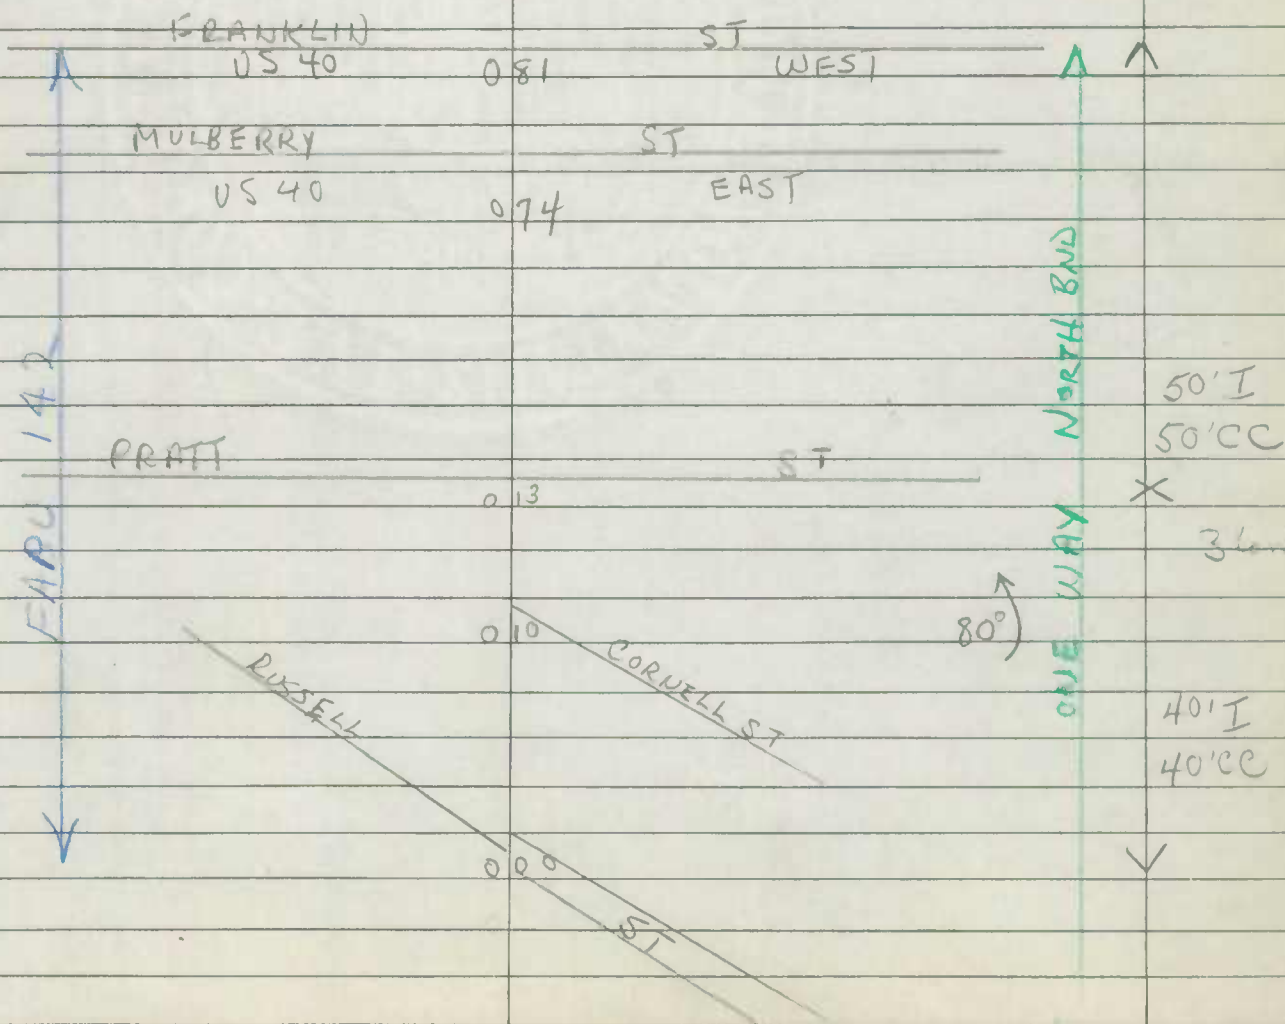 FRANKLIN ST
US 40 0 81 WEST
MULBERRY ST
US 40 EAST
0 74
ONE WAY NORTH BND
50' I
50' CC
PRATT ST
0 13
3
0 10
80°
CORNELL ST
RUSSELL ST
40' I
40' CC
0 0 0